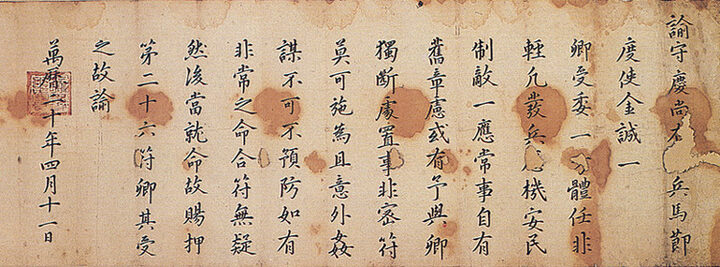 諭守慶尚右兵馬節
度使金誠一
卿受委一方體任非
輕凡發兵應機安民
制敵一應常事自有
舊章慮或有予與卿
獨斷處置事非密符
莫可施為且意外姦
謀不可不預防如有
非常之命合符無疑
然後當就命故賜押
第二十六符卿其受
之故諭
萬曆二十年四月十一日